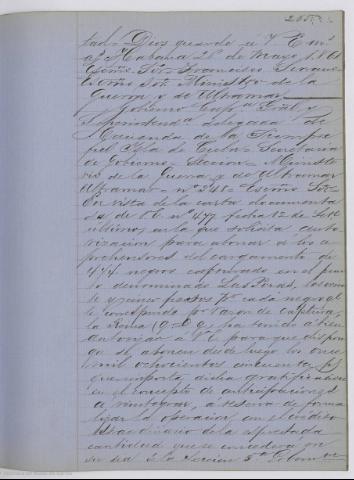 tad - Dios guarde a V. E. m.s
a.s Habana 21 de Mayo, 1861
Exmo. Sor. Francisco Serrano
Exmo. Sor. Ministro de la
Guerra y de Ultramar
Gobierno Cap.a Gral. y
Superintend.a delegada de
Hacienda de la Siempre
fiel Isla de Cuba - Secretaria
de Gobierno - Seccion - Ministe
rio de la Guerra y de Ultramar
Ultramar - n.o 241 - Exmo Sor
En vista de la carta documenta
da de V. E. n.o 477 fecha 12 de
ultimo, en la que solicita auto
rizacion para abonar a los a
prehensores del cargamento de
474 negros en el pun
to denominado Las
te y cinco pesos que cada negro
le corresponde p.r razon de captura,
la Reina (q. D. g.) ha tenido a bien
autorizar a V. E. para que dispon
ga se abonen desde luego los once
mil ochocientos cincuenta p.s
que importa dicha gratificacion
en el concepto de anticipaciones
a reintegrar, a reserva de forma
lizar la operacion con el credito
estraordinario de la espresada
cantidad que se concederá en
su dia a la Seccion 5.a